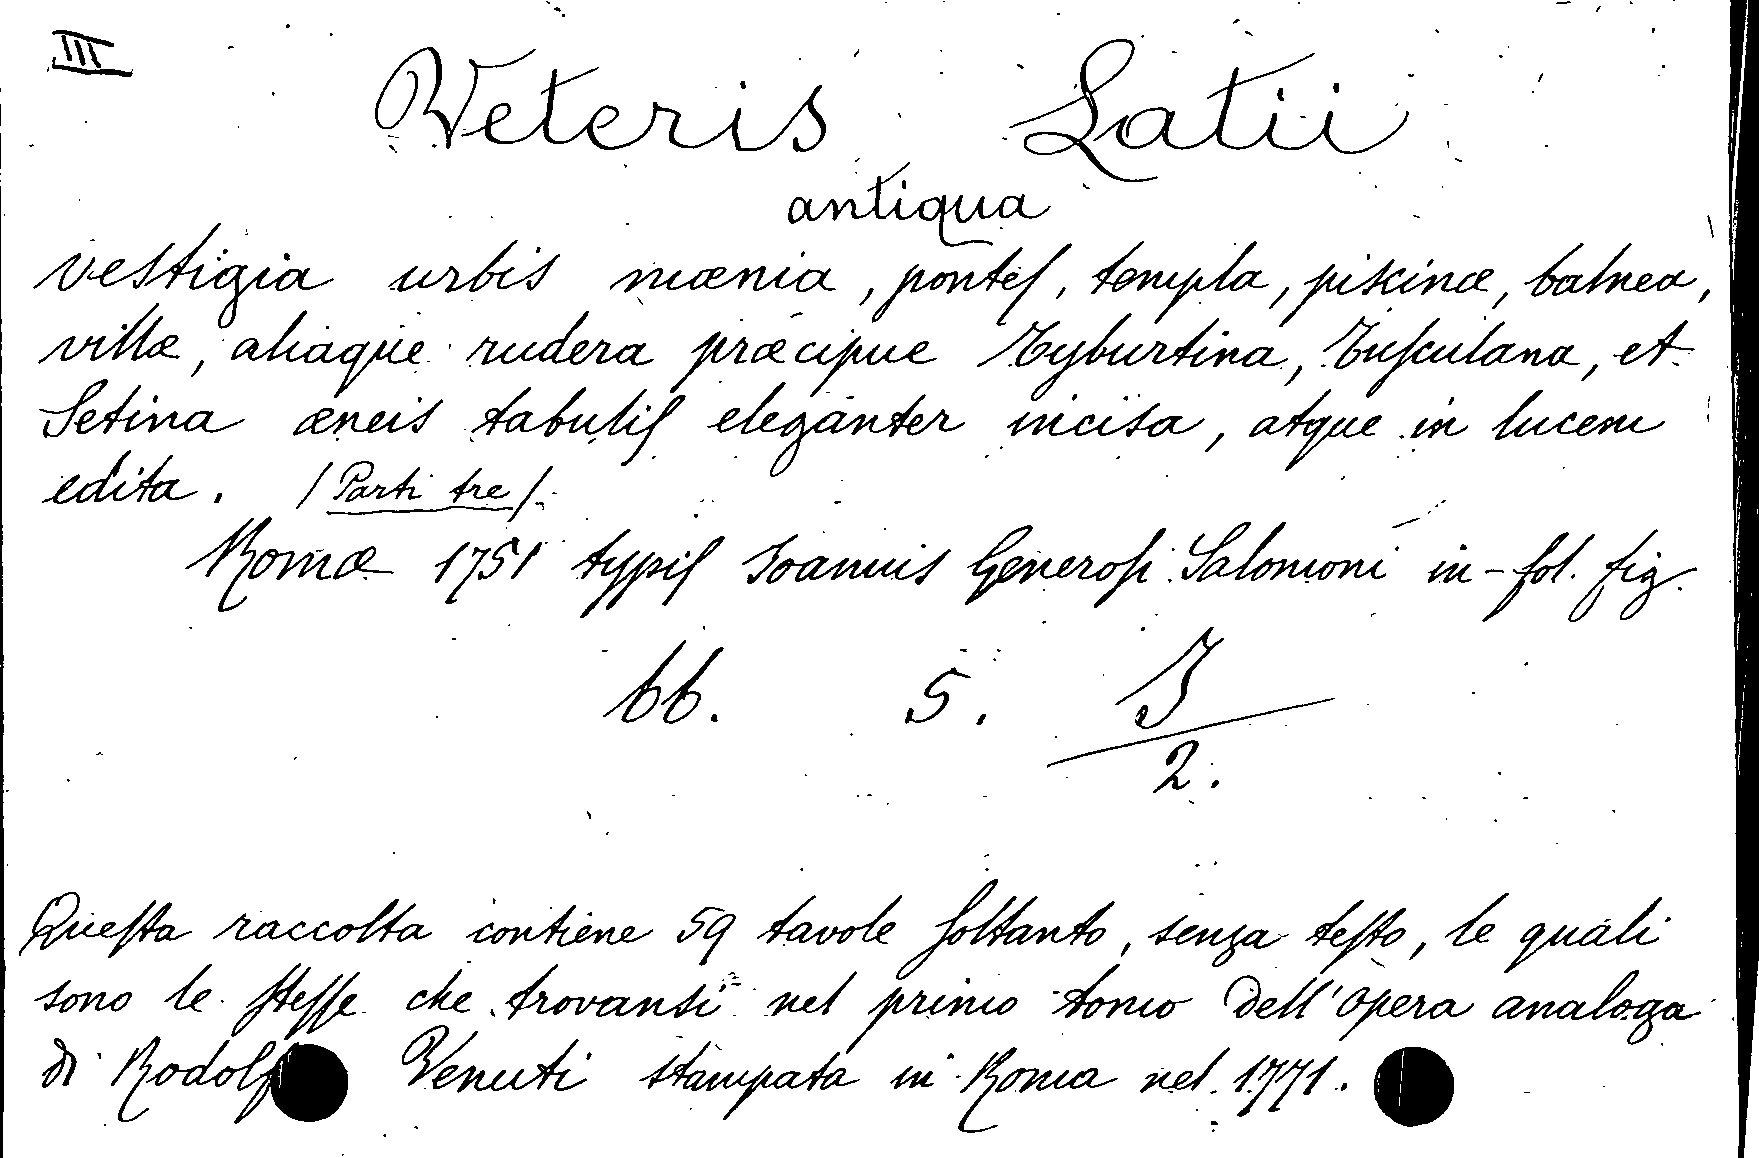 III
Veteris Latii
antiqua
vestigia urbis mœnia, ponteſ, templa, piscinæ, balnea,
villæ, aliaque rudera præcipue Tyburtina, Tuſculana, et
Setina æneis tabuliſ eleganter incisa, atque in lucem
edita. / Parti tre /.
Romæ 1751 typiſ Ioannis Generoſi Salomoni in-fol. fig.
bb. 5. I
2.
Queſta raccolta contiene 59 tavole ſoltanto, senza teſto, le quali
sono le ſteſſe che trovansi nel primo tomo dell'opera analoga
di Rodolf Venuti stampata in Roma nel 1771.